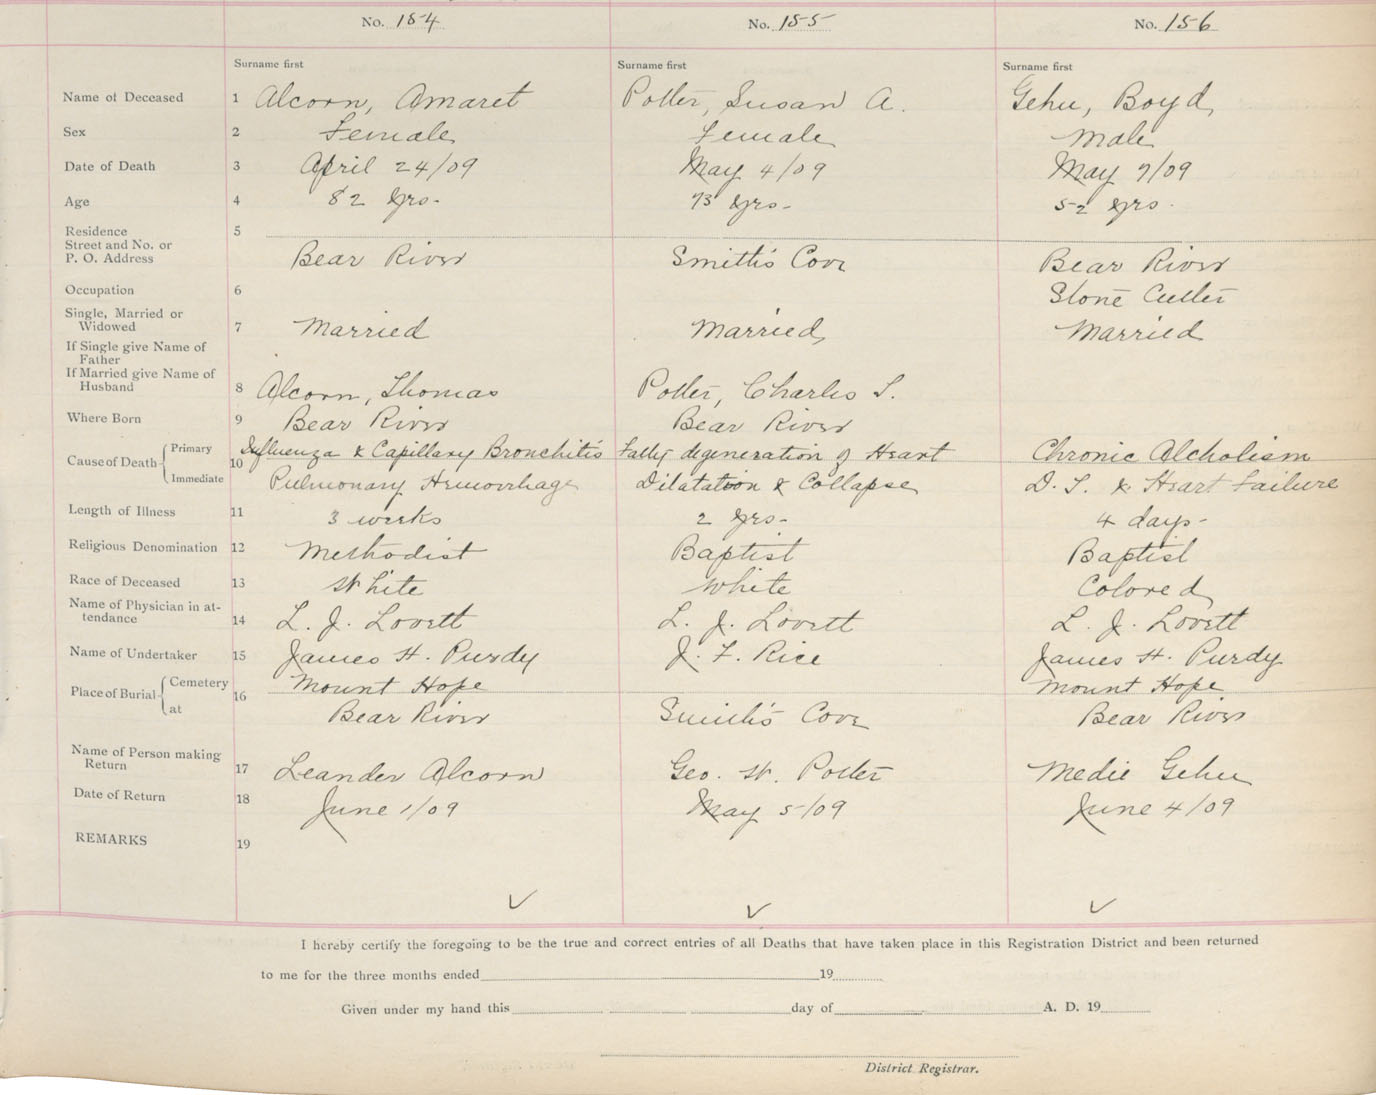 No. 154 No. 155 No. 156
Surname first Surname first Surname first
Name of Deceased 1 Alcorn, Amaret Potter, Susan A. Gehu, Boyd
Sex 2 Female Female Male
Date of Death 3 April 24/09 May 4/09 May 7/09
Age 4 82 yrs- 73 yrs- 52 yrs.
Residence 5
Street and No. or
P. O. Address Bear River Smith's Cove Bear River
Occupation 6 Stone Cutter
Single, Married or
Widowed 7 Married Married Married
If Single give Name of
Father
If Married give Name of
Husband 8 Alcorn, Thomas Potter, Charles S.
Where Born 9 Bear River Bear River
Cause of Death 10 Primary Influenza & Capillary Bronchitis Fatty degeneration of Heart Chronic Alcholism
Immediate Pulmonary Hemorrhage Dilatation & Collapse D. T. & Heart Failure
Length of Illness 11 3 weeks 2 yrs- 4 days-
Religious Denomination 12 Methodist Baptist Baptist
Race of Deceased 13 White White Colored
Name of Physician in at-
tendance 14 L. J. Lovett L. J. Lovett L. J. Lovett
Name of Undertaker 15 James H. Purdy J. F. Rice James H. Purdy
Place of Burial 16 Cemetery Mount Hope Mount Hope
at Bear River Smith's Cove Bear River
Name of Person making
Return 17 Leander Alcorn Geo. W. Potter Medie Gehu
Date of Return 18 June 1/09 May 5/09 June 4/09
REMARKS 19
I hereby certify the foregoing to be the true and correct entries of all Deaths that have taken place in this Registration District and been returned
to me for the three months ended 19
Given under my hand this day of A. D. 19
District Registrar.